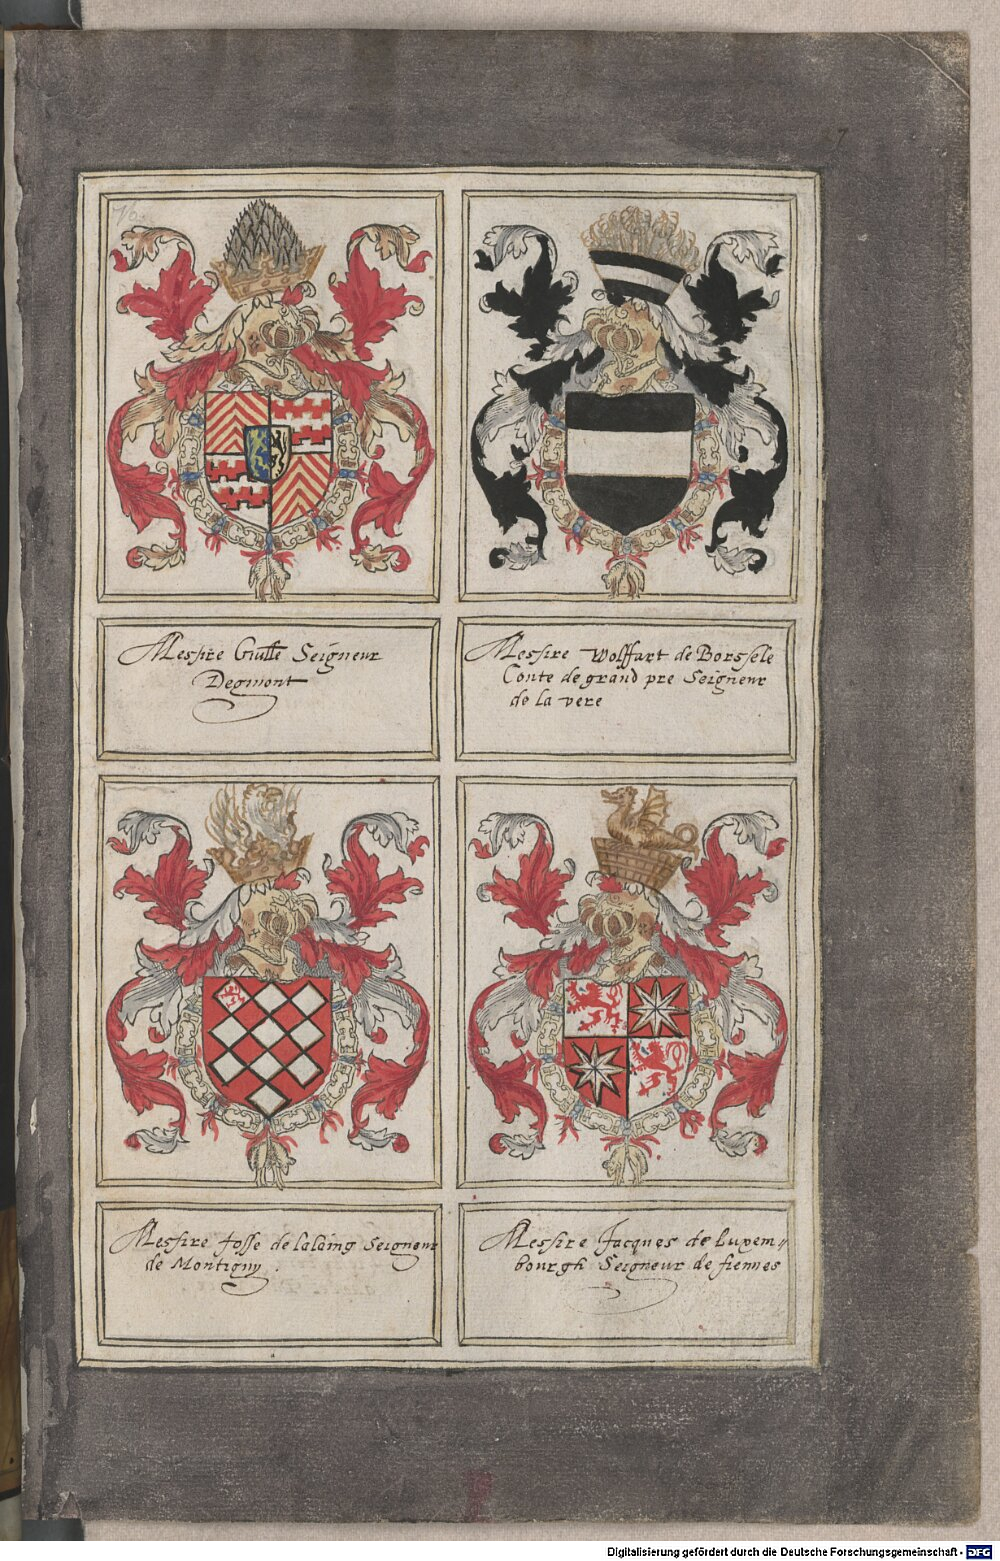 27
76.
Messire Guille Seigneur
Degmont
Messire Wolffart de Borssele
Conte de grand pre Seigneur
de la vere
Messire Josse de lalaing Seigneur
de Montigny.
Messire Jacques de Luxem-
bourgh Seigneur de fiennes
Digitalisierung gefördert durch die Deutsche Forschungsgemeinschaft - DFG